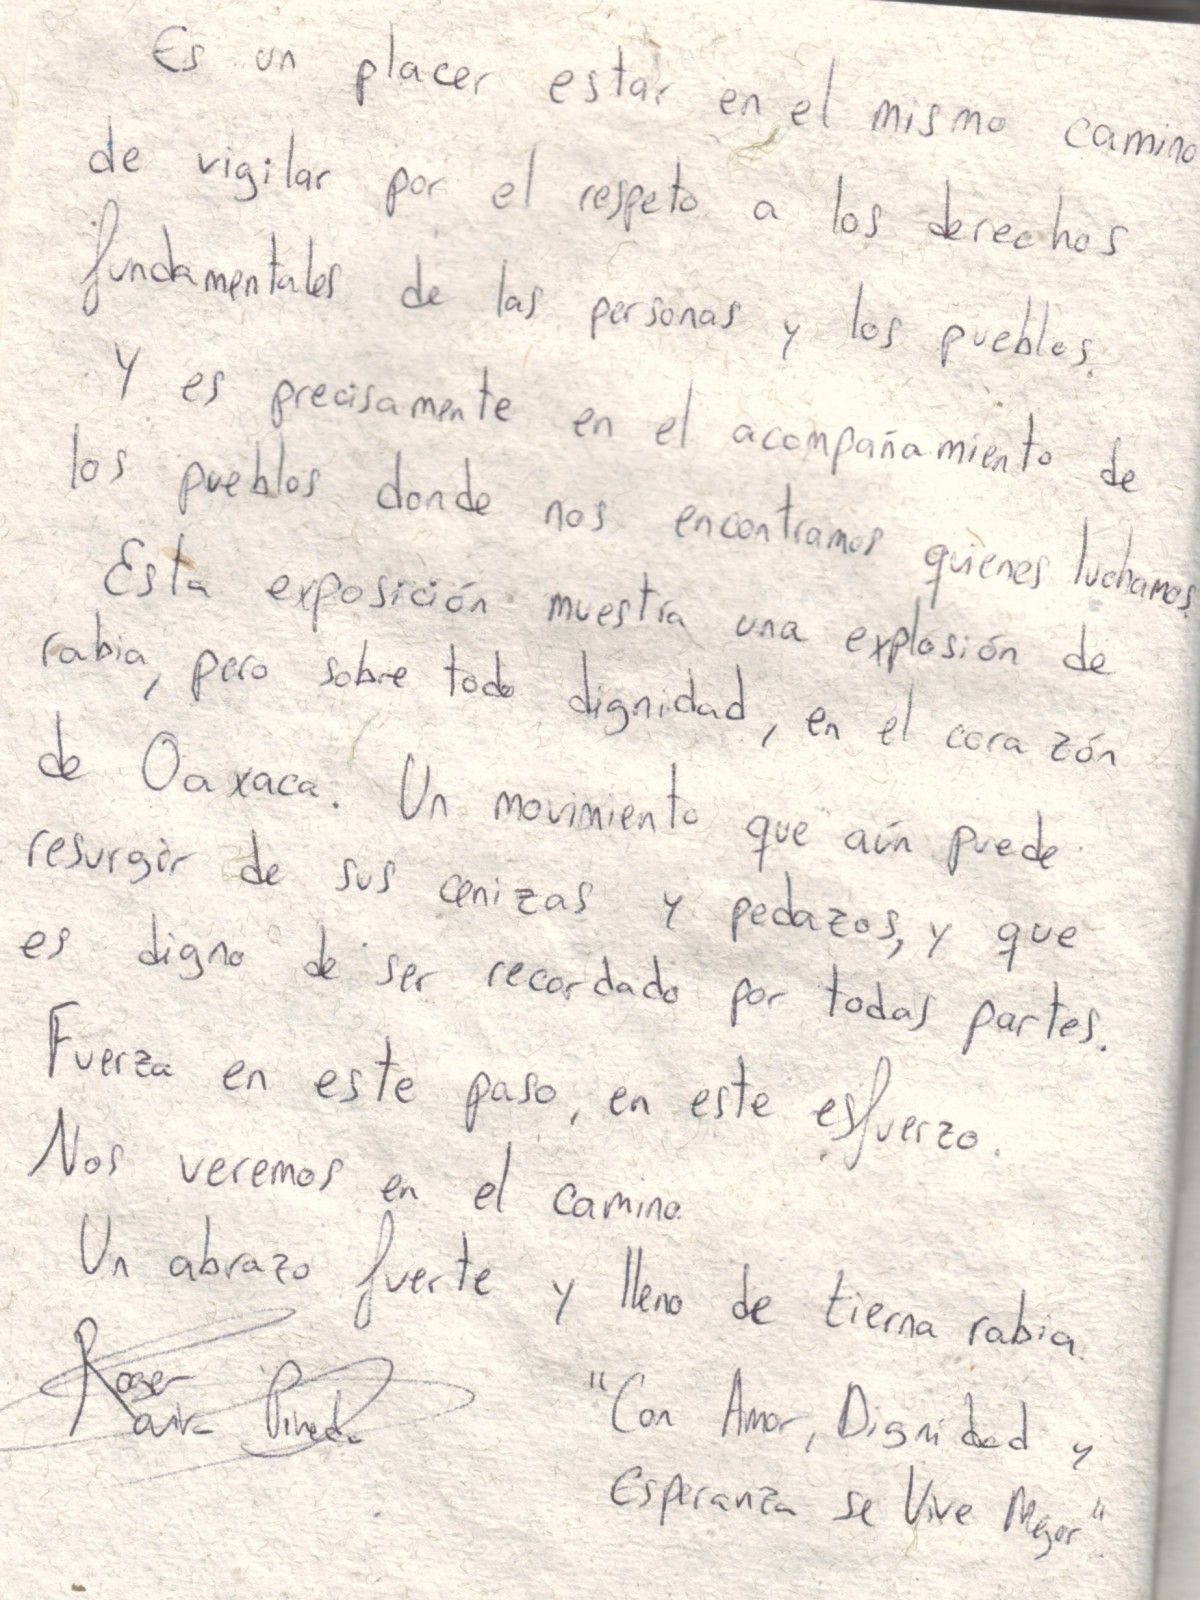 Es un placer estar en el mismo camino
de vigilar por el respeto a los derechos
fundamentales de las personas y los pueblos.
Y es precisamente en el acompañamiento de
los pueblos donde nos encontramos quienes luchamos.
Esta exposición muestra una explosión de
rabia, pero sobre todo dignidad, en el corazón
de Oaxaca. Un movimiento que aún puede
resurgir de sus cenizas y pedazos, y que
es digno de ser recordado por todas partes.
Fuerza en este paso, en este esfuerzo.
Nos veremos en el camino.
Un abrazo fuerte y lleno de tierna rabia.
Roger
Pineda
"Con Amor, Dignidad y
Esperanza se Vive Mejor"